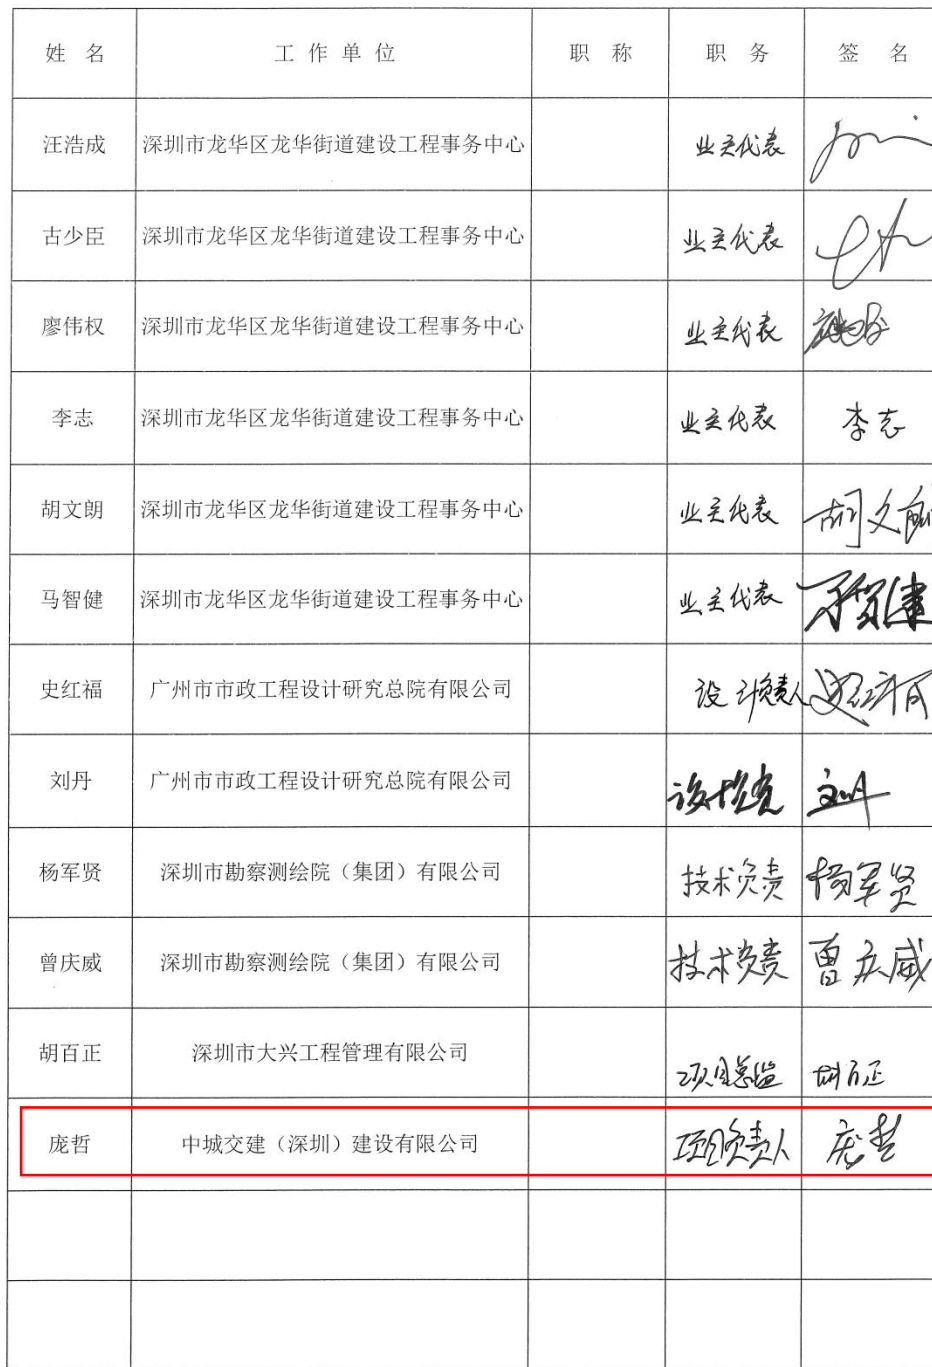 姓 名 工作单位 职 称 职 务 签 名
汪浩成 深圳市龙华区龙华街道建设工程事务中心 业主代表
古少臣 深圳市龙华区龙华街道建设工程事务中心 业主代表
廖伟权 深圳市龙华区龙华街道建设工程事务中心 业主代表
李志 深圳市龙华区龙华街道建设工程事务中心 业主代表 李志
胡文朗 深圳市龙华区龙华街道建设工程事务中心 业主代表 胡文朗
马智健 深圳市龙华区龙华街道建设工程事务中心 业主代表 马智健
史红福 广州市市政工程设计研究总院有限公司 设计负责人 史红福
刘丹 广州市市政工程设计研究总院有限公司 刘丹
杨军贤 深圳市勘察测绘院（集团）有限公司 技术负责 杨军贤
曾庆威 深圳市勘察测绘院（集团）有限公司 技术负责 曾庆威
胡百正 深圳市大兴工程管理有限公司 项目总监 胡百正
庞哲 中城交建（深圳）建设有限公司 项目负责人 庞哲